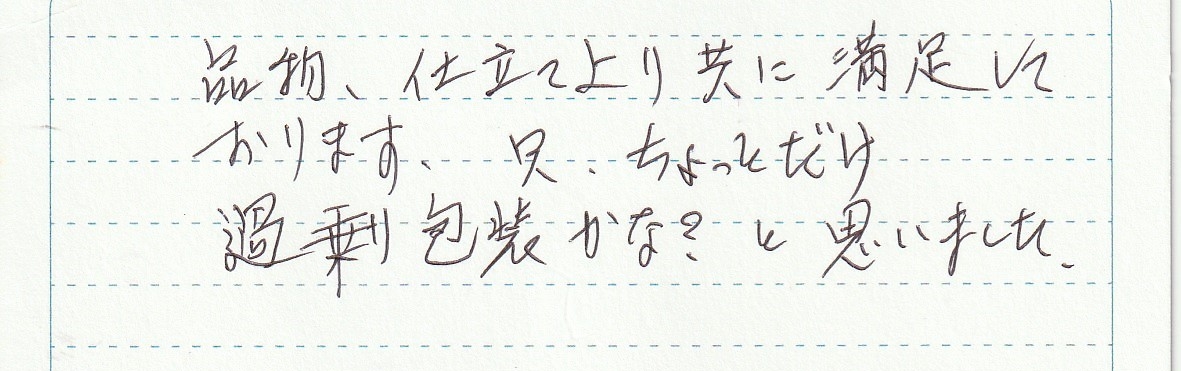 品物、仕立て上り共に満足して
おります、只、ちょっとだけ
過剰包装かな?と思いました、